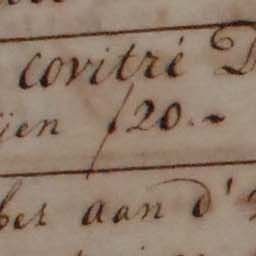 covitré D
ijen ƒ20.-
bet aan d'